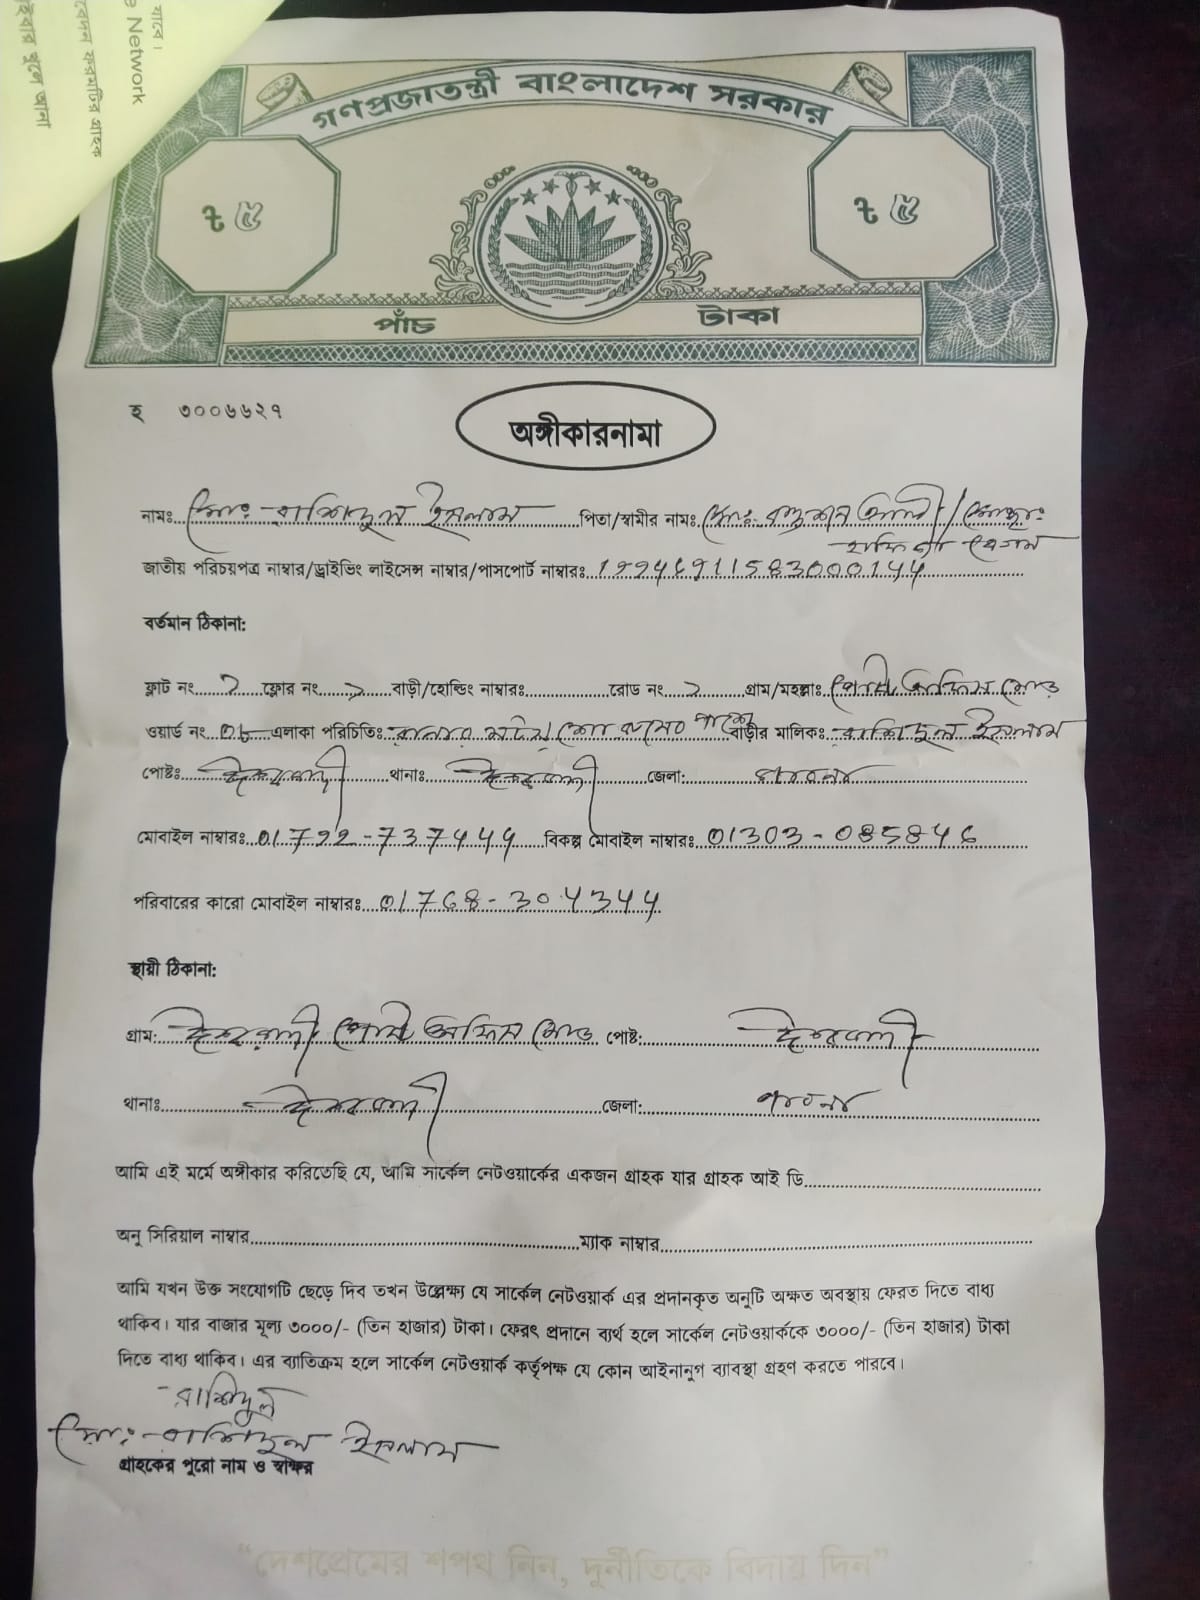 যাবে।
e Network
বেদন ফরমটির গ্রাহক
খুলে আনা
গণপ্রজাতন্ত্রী বাংলাদেশ সরকার
৳ ৫
৳ ৫
পাঁচ টাকা
হ ৩০০৬৬২৭
অঙ্গীকারনামা
নামঃ মোঃ- রাশিদুল ইসলাম পিতা/স্বামীর নামঃ মোঃ আলী / মোছাঃ
বেগম
জাতীয় পরিচয়পত্র নাম্বার/ড্রাইভিং লাইসেন্স নাম্বার/পাসপোর্ট নাম্বারঃ
বর্তমান ঠিকানা:
ফ্লাট নং ২ ফ্লোর নং ১ বাড়ী/হোল্ডিং নাম্বারঃ রোড নং ১ গ্রাম/মহল্লাঃ পোষ্ট অফিস মোড়
ওয়ার্ড নং ০৮ এলাকা পরিচিতিঃ পাশে বাড়ীর মালিকঃ রাশিদুল ইসলাম
পোষ্টঃ ঈশ্বরদী থানাঃ ঈশ্বরদী জেলা: পাবনা
মোবাইল নাম্বারঃ 01792-737444 বিকল্প মোবাইল নাম্বারঃ 01303-085846
পরিবারের কারো মোবাইল নাম্বারঃ 01768-304344
স্থায়ী ঠিকানা:
গ্রাম: ঈশ্বরদী পোষ্ট অফিস মোড় পোষ্ট: ঈশ্বরদী
থানাঃ ঈশ্বরদী জেলা: পাবনা
আমি এই মর্মে অঙ্গীকার করিতেছি যে, আমি সার্কেল নেটওয়ার্কের একজন গ্রাহক যার গ্রাহক আই ডি
অনু সিরিয়াল নাম্বার ম্যাক নাম্বার
আমি যখন উক্ত সংযোগটি ছেড়ে দিব তখন উল্লেক্ষ্য যে সার্কেল নেটওয়ার্ক এর প্রদানকৃত অনুটি অক্ষত অবস্থায় ফেরত দিতে বাধ্য
থাকিব। যার বাজার মূল্য ৩০০০/- (তিন হাজার) টাকা। ফেরৎ প্রদানে ব্যর্থ হলে সার্কেল নেটওয়ার্ককে ৩০০০/- (তিন হাজার) টাকা
দিতে বাধ্য থাকিব। এর ব্যাতিক্রম হলে সার্কেল নেটওয়ার্ক কর্তৃপক্ষ যে কোন আইনানুগ ব্যাবস্থা গ্রহণ করতে পারবে।
রাশিদুল
মোঃ- রাশিদুল ইসলাম
গ্রাহকের পুরো নাম ও স্বাক্ষর
“দেশপ্রেমের শপথ নিন, দুর্নীতিকে বিদায় দিন”